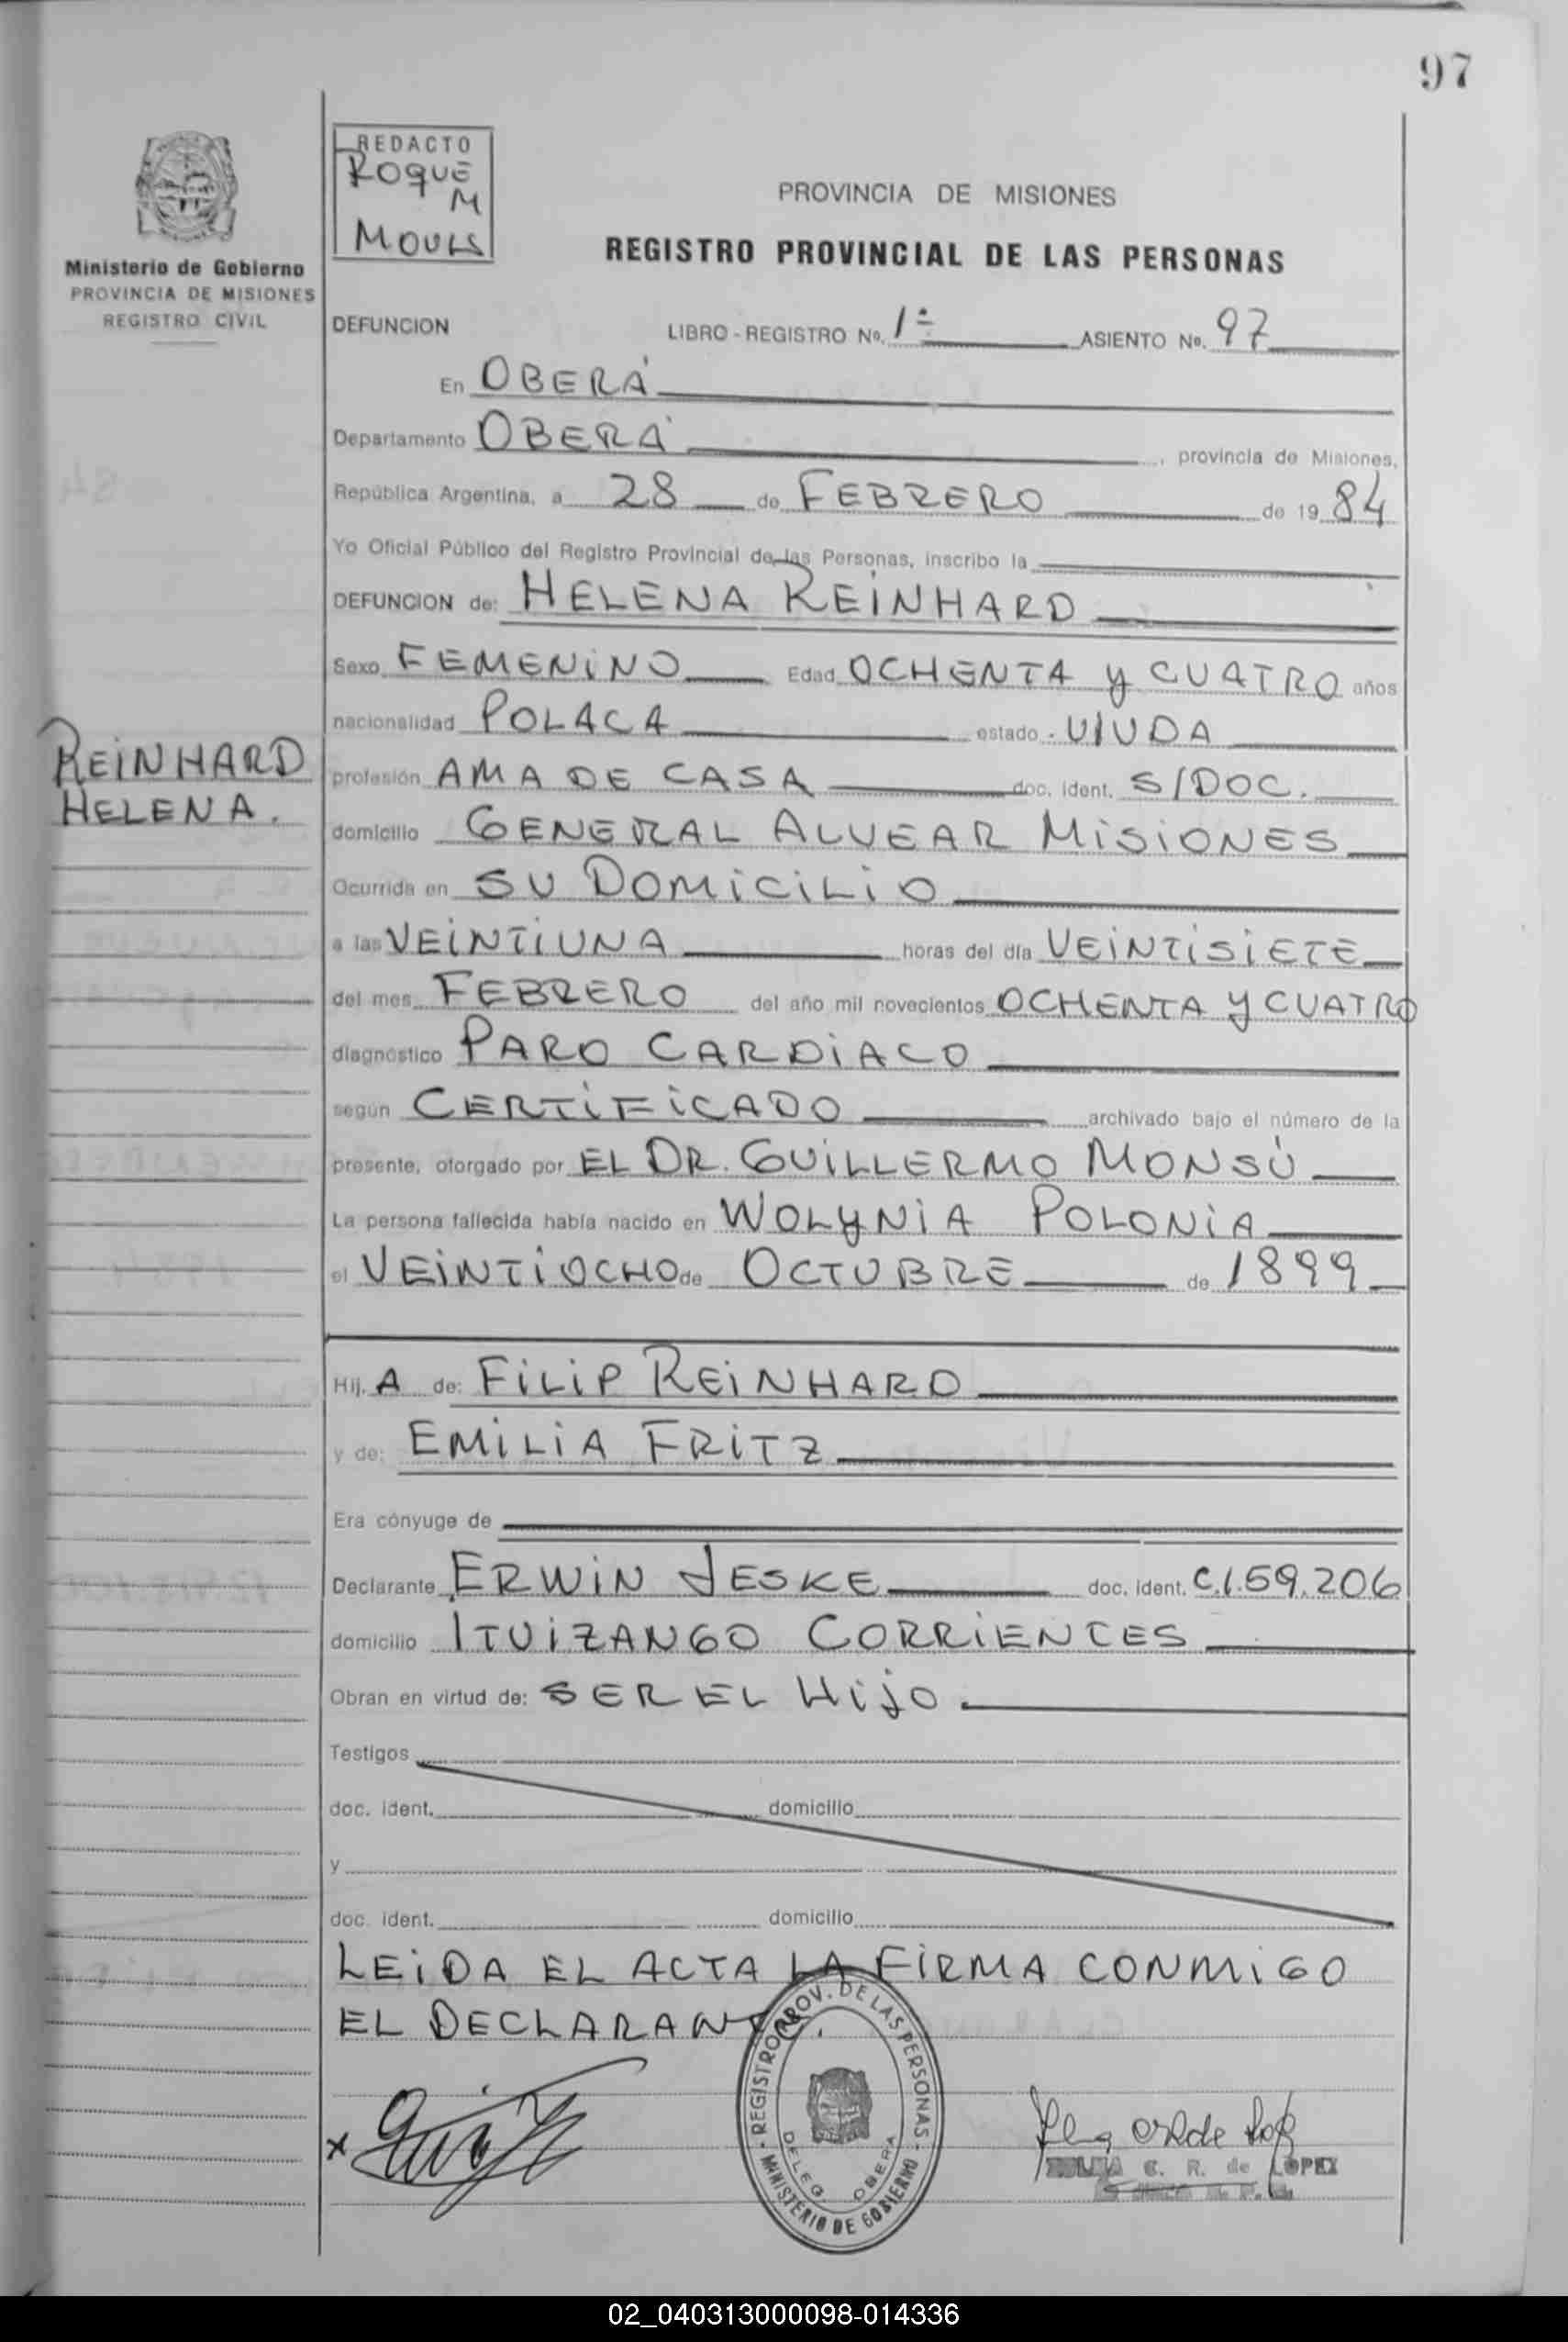 97
Ministerio de Gobierno
PROVINCIA DE MISIONES
REGISTRO CIVIL
REDACTO
ROQUE
M
PROVINCIA DE MISIONES
REGISTRO PROVINCIAL DE LAS PERSONAS
DEFUNCION LIBRO - REGISTRO No. 1º ASIENTO No. 97
En OBERÁ
Departamento OBERÁ, provincia de Misiones,
República Argentina, a 28 de FEBRERO de 1984
Yo Oficial Público del Registro Provincial de las Personas, inscribo la
DEFUNCION de: HELENA REINHARD
Sexo FEMENINO Edad OCHENTA y CUATRO años
nacionalidad POLACA estado VIUDA
REINHARD
HELENA.
profesión AMA DE CASA doc. ident. S/DOC.
domicilio GENERAL ALVEAR MISIONES
Ocurrida en SU DOMICILIO
a las VEINTIUNA horas del día VEINTISIETE
del mes FEBRERO del año mil novecientos OCHENTA y CUATRO
diagnóstico PARO CARDIACO
según CERTIFICADO archivado bajo el número de la
presente, otorgado por EL DR. GUILLERMO MONSÚ
La persona fallecida había nacido en WOLYNIA POLONIA
el VEINTIOCHO de OCTUBRE de 1899
Hij. A de: FILIP REINHARD
y de: EMILIA FRITZ
Era cónyuge de
Declarante ERWIN JESKE doc. ident. C.I.59.206
domicilio ITUIZANGO CORRIENTES
Obran en virtud de: SER EL HIJO.
Testigos
doc. ident. domicilio
y
doc. ident. domicilio
LEIDA EL ACTA LA FIRMA CONMIGO
EL DECLARANTE.
REGISTRO PROV. DE LAS PERSONAS
DELEG OBERA
MINISTERIO DE GOBIERNO
x
C. R. de LOPEZ
02_040313000098-014336